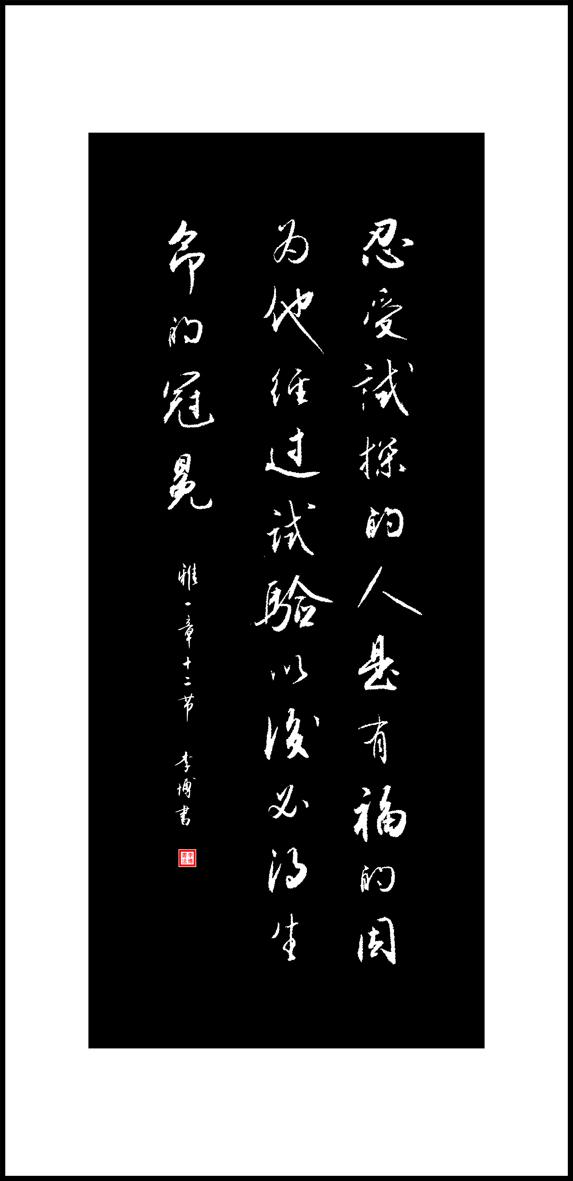 忍受试探的人是有福的因
为他经过试验以後必得生
命的冠冕
雅一章十二节 李博书